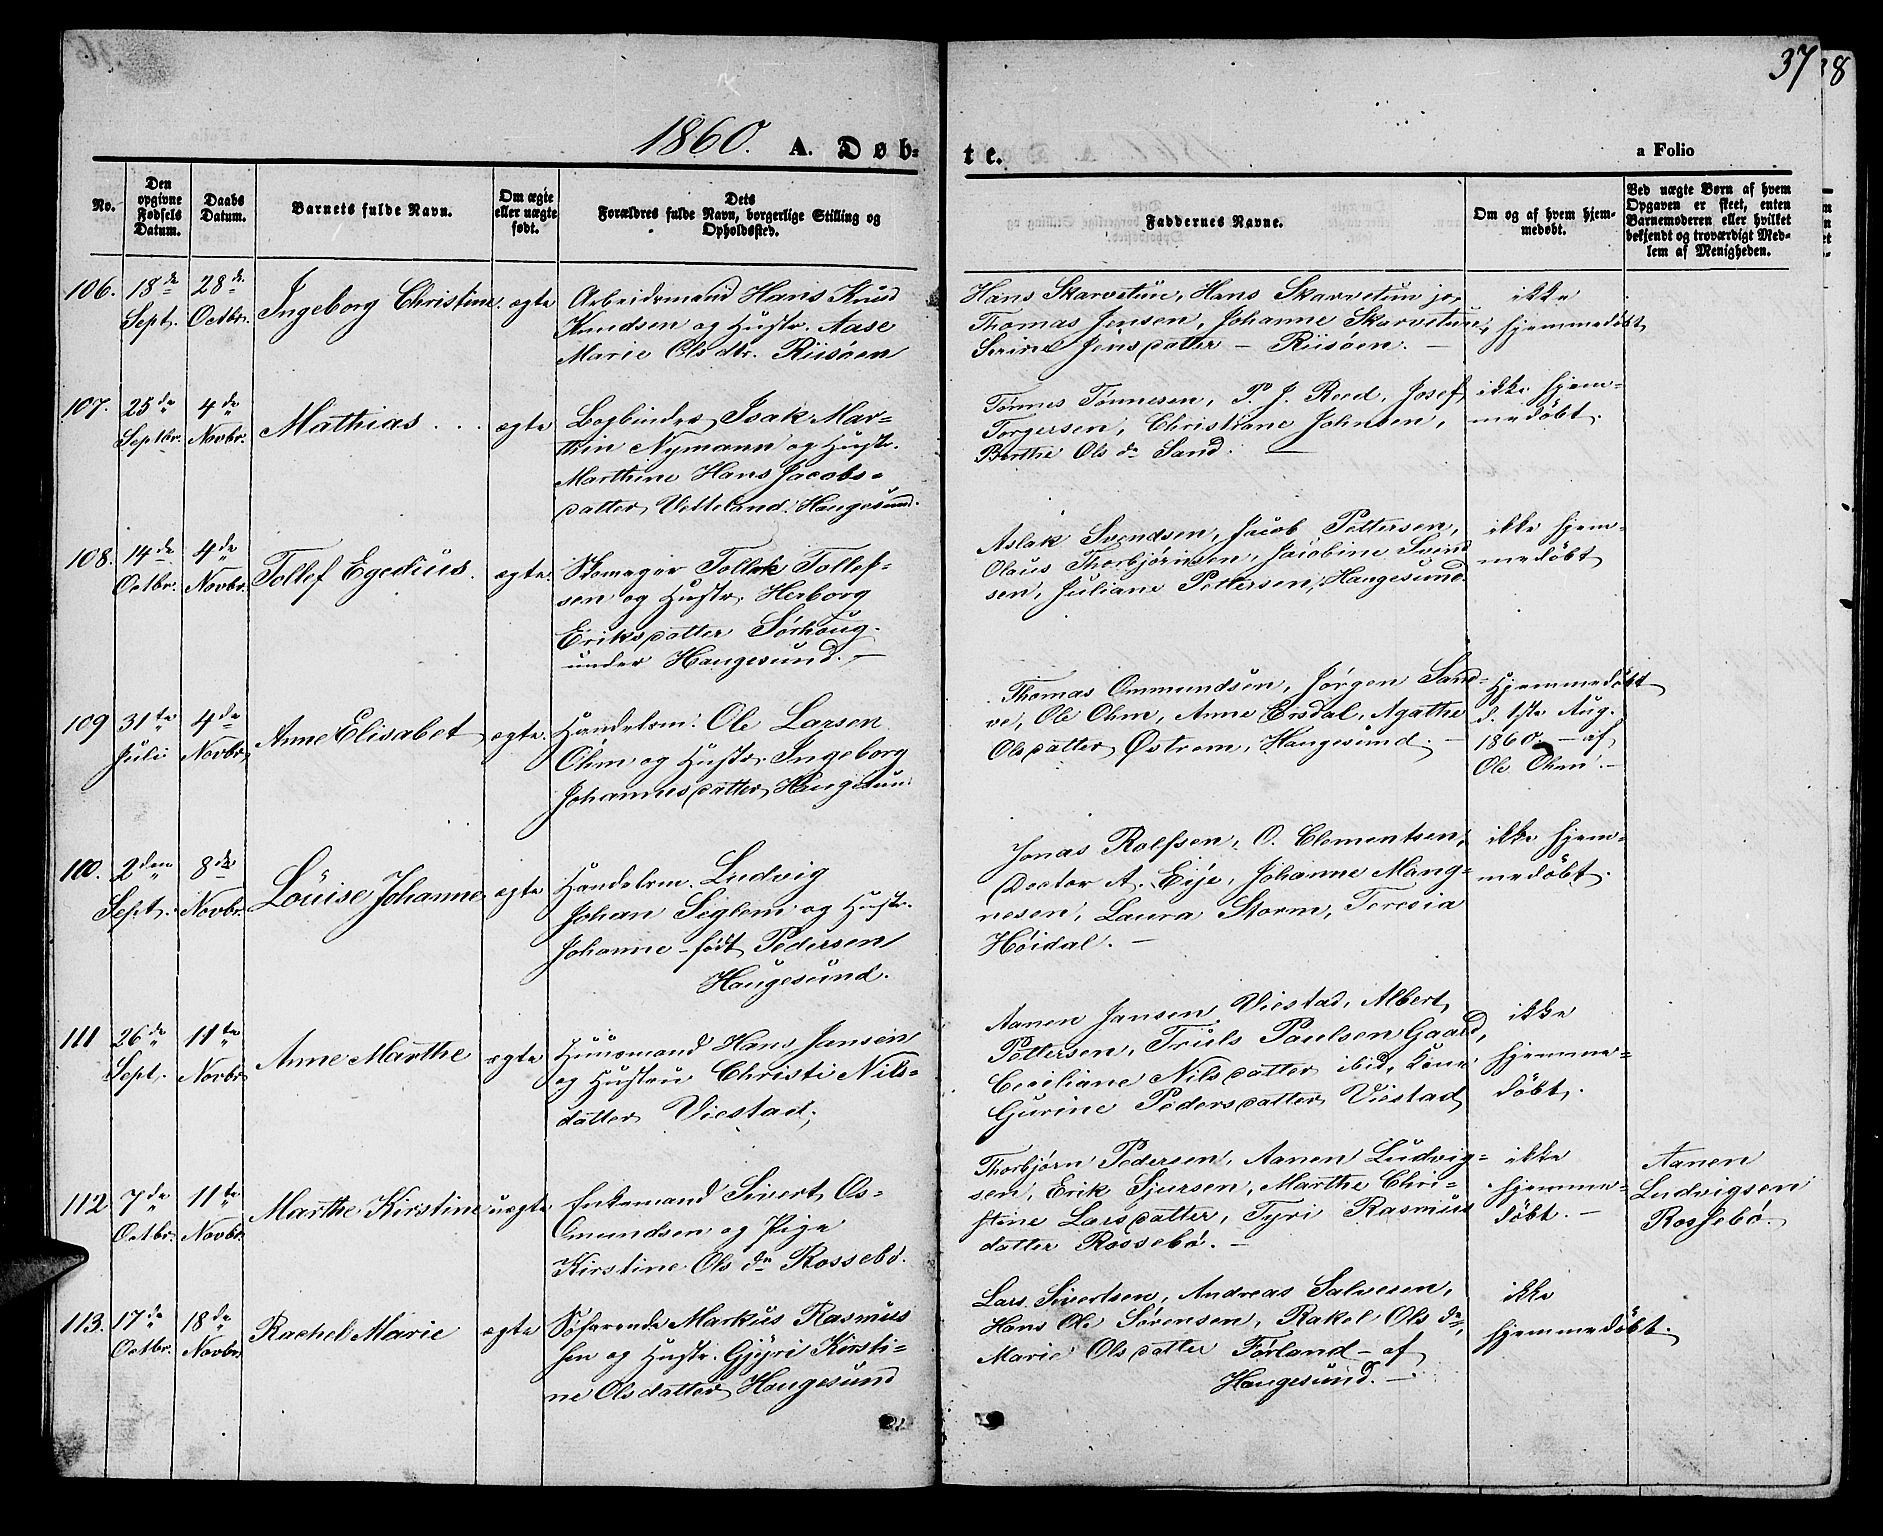 37
8
1860. A. Døb-
te.
a Folio
No.
Den
opgivne
Fødsels
Datum.
Daabs
Datum.
Barnets fulde Navn.
Om ægte
eller uægte
født.
Dets
Forældres fulde Navn, borgerlige Stilling og
Opholdssted.
Faddernes Navne.
Om og af hvem hjem-
medøbt.
Ved uægte Børn af hvem
Opgaven er skeet, enten
Barnemoderen eller hvilket
bekjendt og troværdigt Med-
lem af Menigheden.
106.
18de
Sept.
28de
Octbr.
Ingeborg Christine
ægte
Arbeidsmand Hans Knud
Knudsen og Hustr. Aase
Marie Olsdtr. Riisøen
Hans Skarvetun, Hans Skarvetun jr,
Thomas Jensen, Johanne Skarvetun,
Serine Jensdatter — Riisøen. —
ikke
hjemmedøbt
107.
25de
Septbr.
4de
Novbr.
Mathias . . .
ægte
Bogbinder Isak Mar-
thin Nymann og Hustr.
Marthine Hans Jacobs-
datter Velleland. Haugesund.
Tønnes Tønnesen, P. J. Reed, Josef
Torgersen, Christiane Johnsen,
Berthe Olsdr Sand. —
ikke hjem-
medøbt.
108.
14de
Octbr.
4de
Novbr.
Tollef Egedius.
ægte.
Skomager Tollek Tollef-
sen og Hustr. Herborg
Eriksdatter Sørhoug.
under Haugesund. —
Aslak Svendsen, Jacob Pettersen,
Olaus Thorbjørnsen, Jacobine Svend
sen, Juliane Pettersen, Haugesund.
ikke hjem-
medøbt
109
31te
Juli
4de
Novbr.
Anne Elisabet
ægte.
Handelsm: Ole Larsen
Ohm og Hustr. Ingeborg
Johannesdatter, Haugesun:
Thomas Ommundsen, Jørgen Sand-
ve, Ole Ohm, Anne Ersdal, Agathe
Olsdatter Østrem, Haugesund. —
Hjemmedøbt
d. 1ste Aug.
1860. — af
Ole Ohm. —
110.
2den
Sept.
8de
Novbr.
Louise Johanne
ægte
Handelsm. Ludvig
Johan Seglem og Hustr.
Johanne - født Pedersen
Haugesund.
Jonas Rolfsen, O. Clementsen,
Doctor A. Eije, Johanne Mang-
nesen, Laura Storm, Teresia
Høidal. —
ikke hjem-
medøbt.
111
26de
Sept.
11te
Novbr
Anne Marthe
ægte
Huusmand Hans Jansen
og Hustru Christi Nils-
datter Viestad,
Aanen Jansen Viestad, Albert
Pettersen, Truls Paulsen Gaard,
Ceciliane Nilsdatter ibid, Kone
Gurine Pedersdatter Viestad
ikke
hjemme-
døbt.
112
7de
Octbr.
11te
Novbr.
Marthe Kirstine
uægte
Enkemand Sivert Os-
mundsen og Pige
Kirstine Olsdr Rossebø.
Thorbjørn Pedersen, Aanen Ludvig-
sen, Erik Sjursen, Marthe Chri-
stine Larsdatter, Tyri Rasmus
datter Rossebø. —
ikke
hjemme-
døbt. —
Aanen
Ludvigsen
Rossebø.
113.
17de
Octbr.
18de
Novbr.
Rachel Marie
ægte
Søfarende Markus Rasmus
sen og Hustr. Gjyri Kirsti-
ne Olsdatter Haugesund
Lars Sivertsen, Andreas Salvesen,
Hans Ole Sørensen, Rakel Olsdr,
Marie Olsdatter Førland — af
Haugesund. —
ikke
hjemmedøbt.